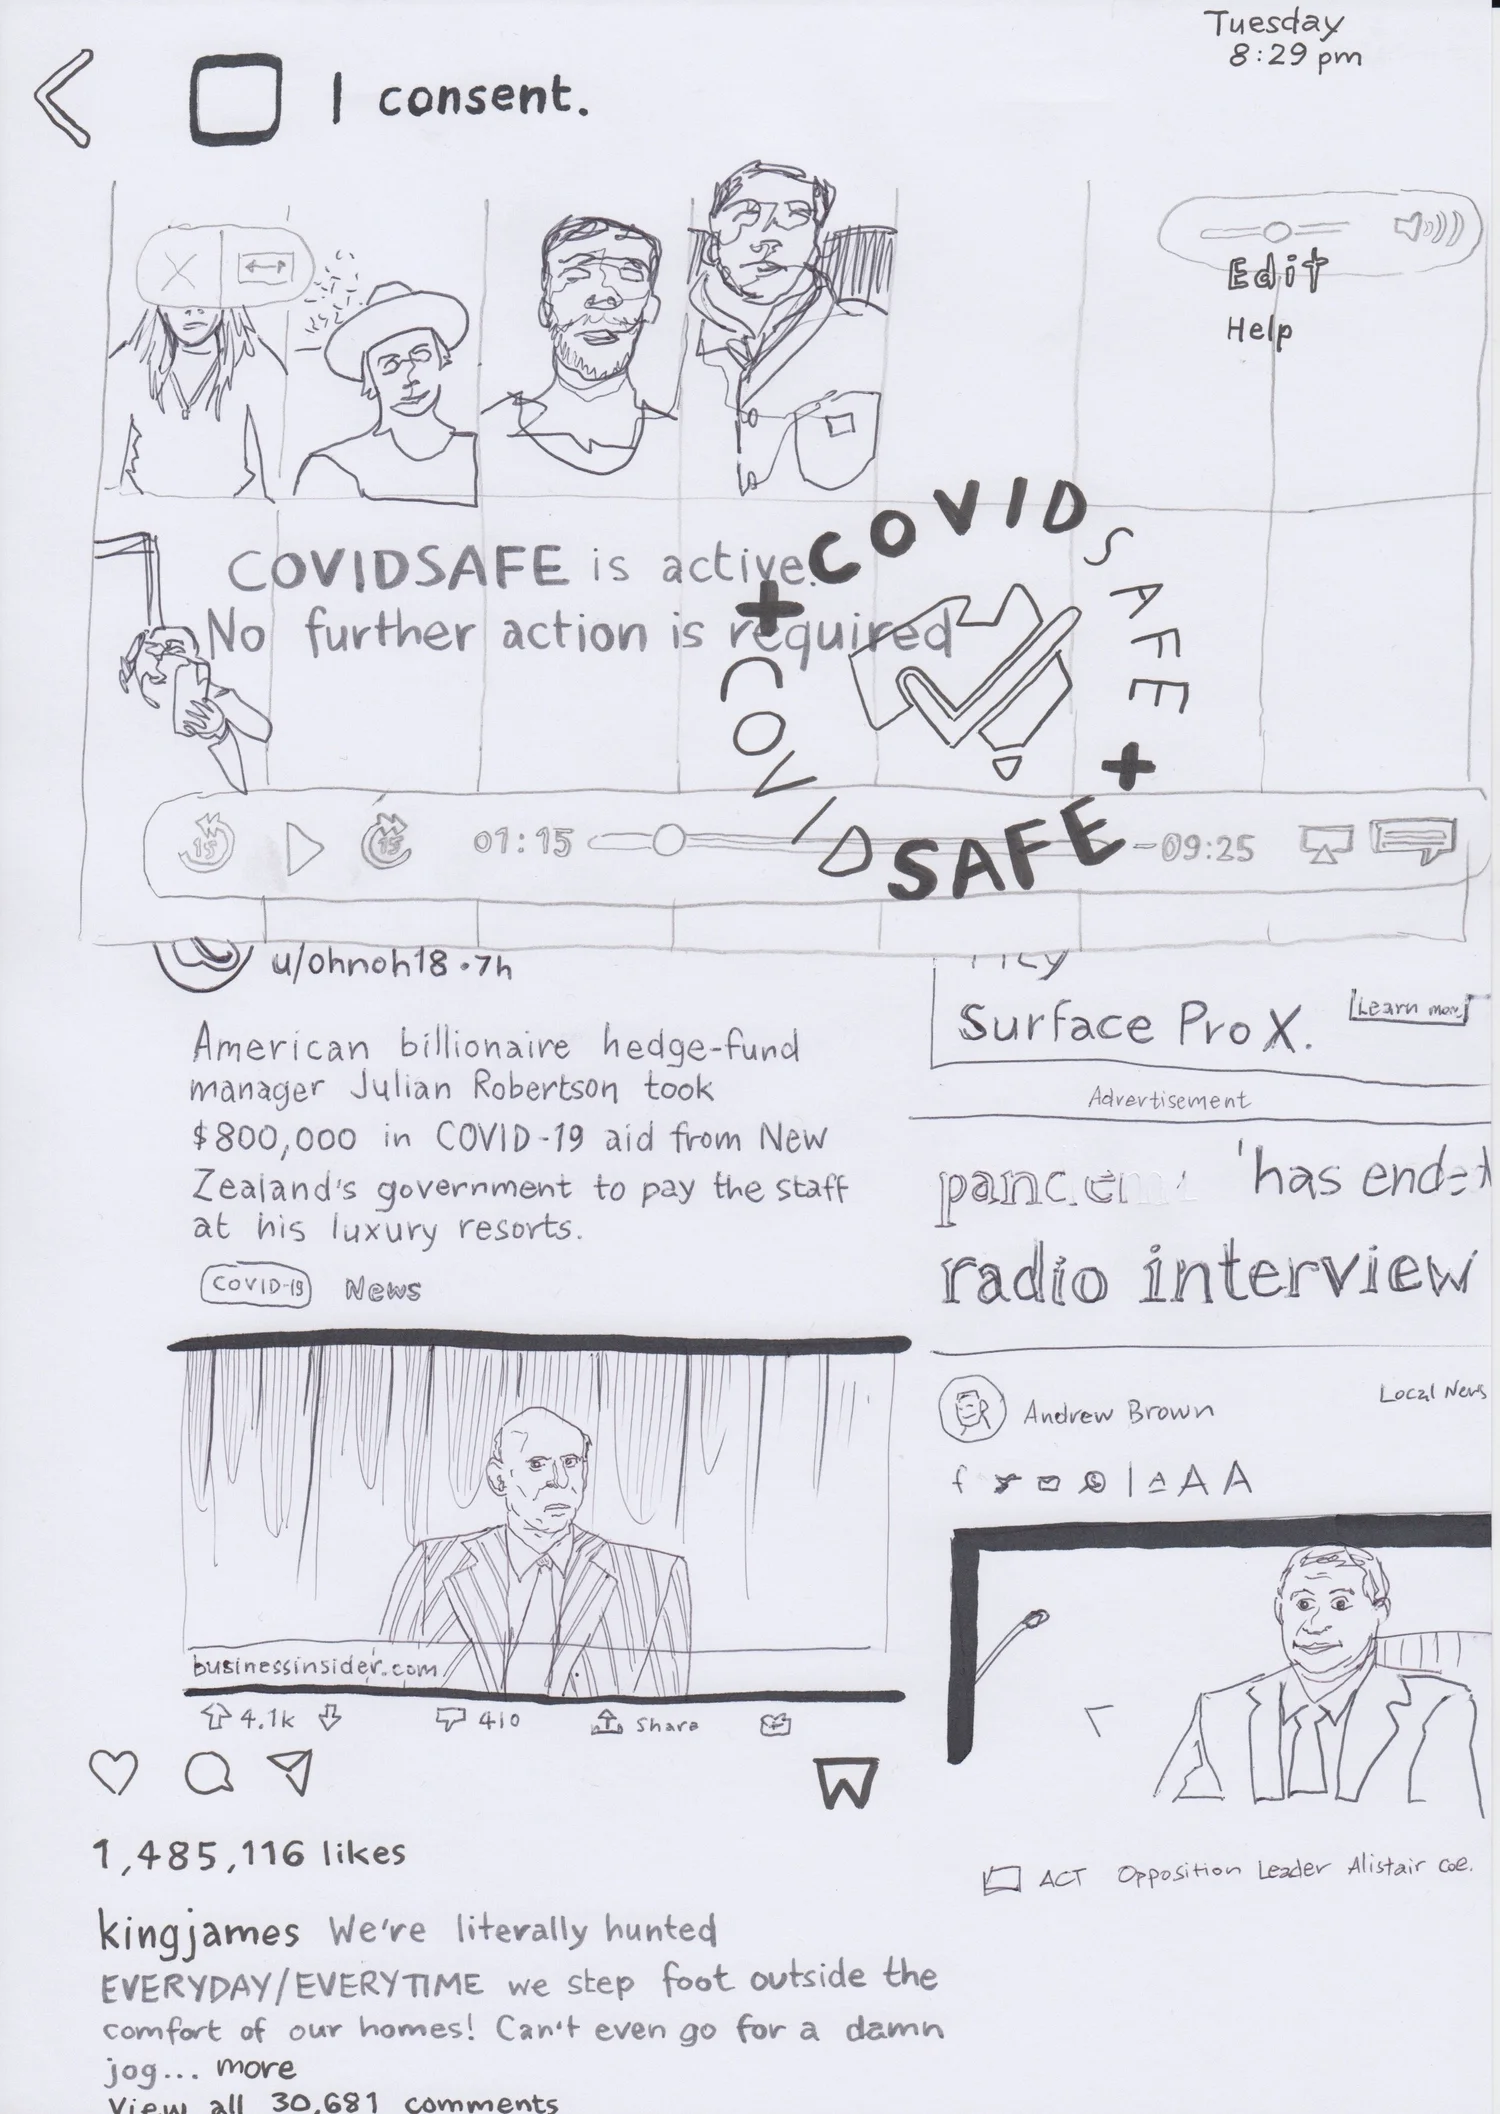 Tuesday
8:29 pm
I consent.
Edit
Help
COVIDSAFE is active.
No further action is required
COVIDSAFE + COVIDSAFE +
15
15
01:15
-09:25
u/ohnoh18 · 7h
American billionaire hedge-fund
manager Julian Robertson took
$800,000 in COVID-19 aid from New
Zealand's government to pay the staff
at his luxury resorts.
COVID-19 News
businessinsider.com
4.1k 410 Share
1,485,116 likes
kingjames We're literally hunted
EVERYDAY/EVERYTIME we step foot outside the
comfort of our homes! Can't even go for a damn
jog... more
View all 30,681 comments
Surface Pro X.
Learn more
Advertisement
'has ended
radio interview
Andrew Brown
Local News
f | A A A
ACT Opposition Leader Alistair Coe.